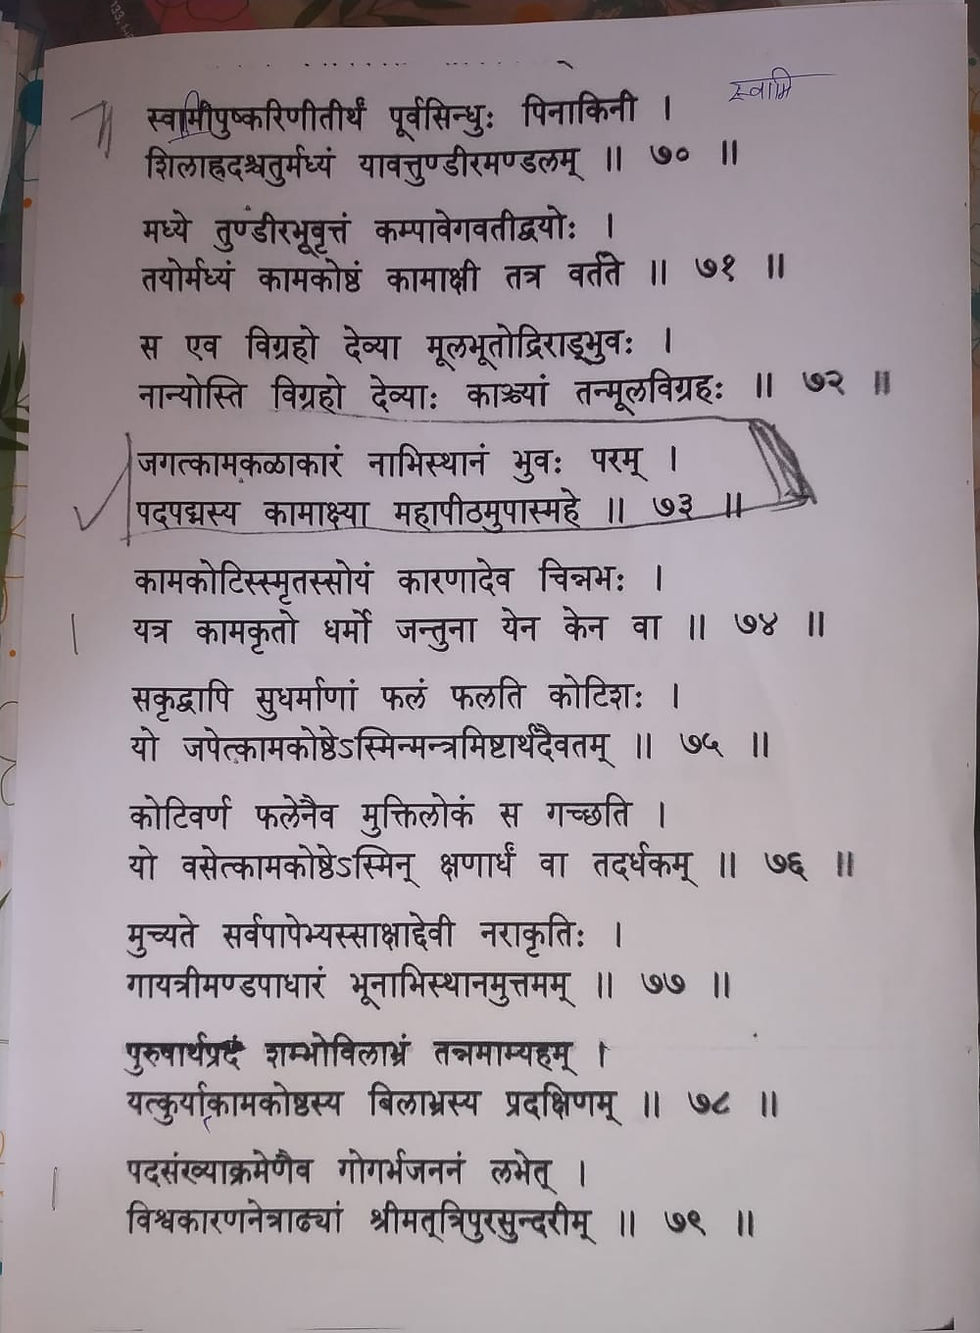 स्वामि
स्वामीपुष्करिणीतीर्थं पूर्वसिन्धुः पिनाकिनी ।
शिलाह्रदश्चतुर्मध्यं यावत्तुण्डीरमण्डलम् ॥ ७० ॥
मध्ये तुण्डीरभूवृत्तं कम्पावेगवतीद्वयोः ।
तयोर्मध्यं कामकोष्ठं कामाक्षी तत्र वर्तते ॥ ७१ ॥
स एव विग्रहो देव्या मूलभूतोद्रिराड्भुवः ।
नान्योस्ति विग्रहो देव्याः काञ्च्यां तन्मूलविग्रहः ॥ ७२ ॥
जगत्कामकळाकारं नाभिस्थानं भुवः परम् ।
पदपद्मस्य कामाक्ष्या महापीठमुपास्महे ॥ ७३ ॥
कामकोटिस्स्मृतस्सोयं कारणादेव चिन्नभः ।
यत्र कामकृतो धर्मो जन्तुना येन केन वा ॥ ७४ ॥
सकृद्वापि सुधर्माणां फलं फलति कोटिशः ।
यो जपेत्कामकोष्ठेऽस्मिन्मन्त्रमिष्टार्थदैवतम् ॥ ७५ ॥
कोटिवर्ण फलेनैव मुक्तिलोकं स गच्छति ।
यो वसेत्कामकोष्ठेऽस्मिन् क्षणार्धं वा तदर्धकम् ॥ ७६ ॥
मुच्यते सर्वपापेभ्यस्साक्षाद्देवी नराकृतिः ।
गायत्रीमण्डपाधारं भूनाभिस्थानमुत्तमम् ॥ ७७ ॥
पुरुषार्थप्रदं शम्भोविलाभ्रं तन्नमाम्यहम् ।
यत्कुर्याकामकोष्ठस्य बिलाभ्रस्य प्रदक्षिणम् ॥ ७८ ॥
पदसंख्याक्रमेणैव गोगर्भजननं लभेत् ।
विश्वकारणनेत्राढ्यां श्रीमत्त्रिपुरसुन्दरीम् ॥ ७९ ॥